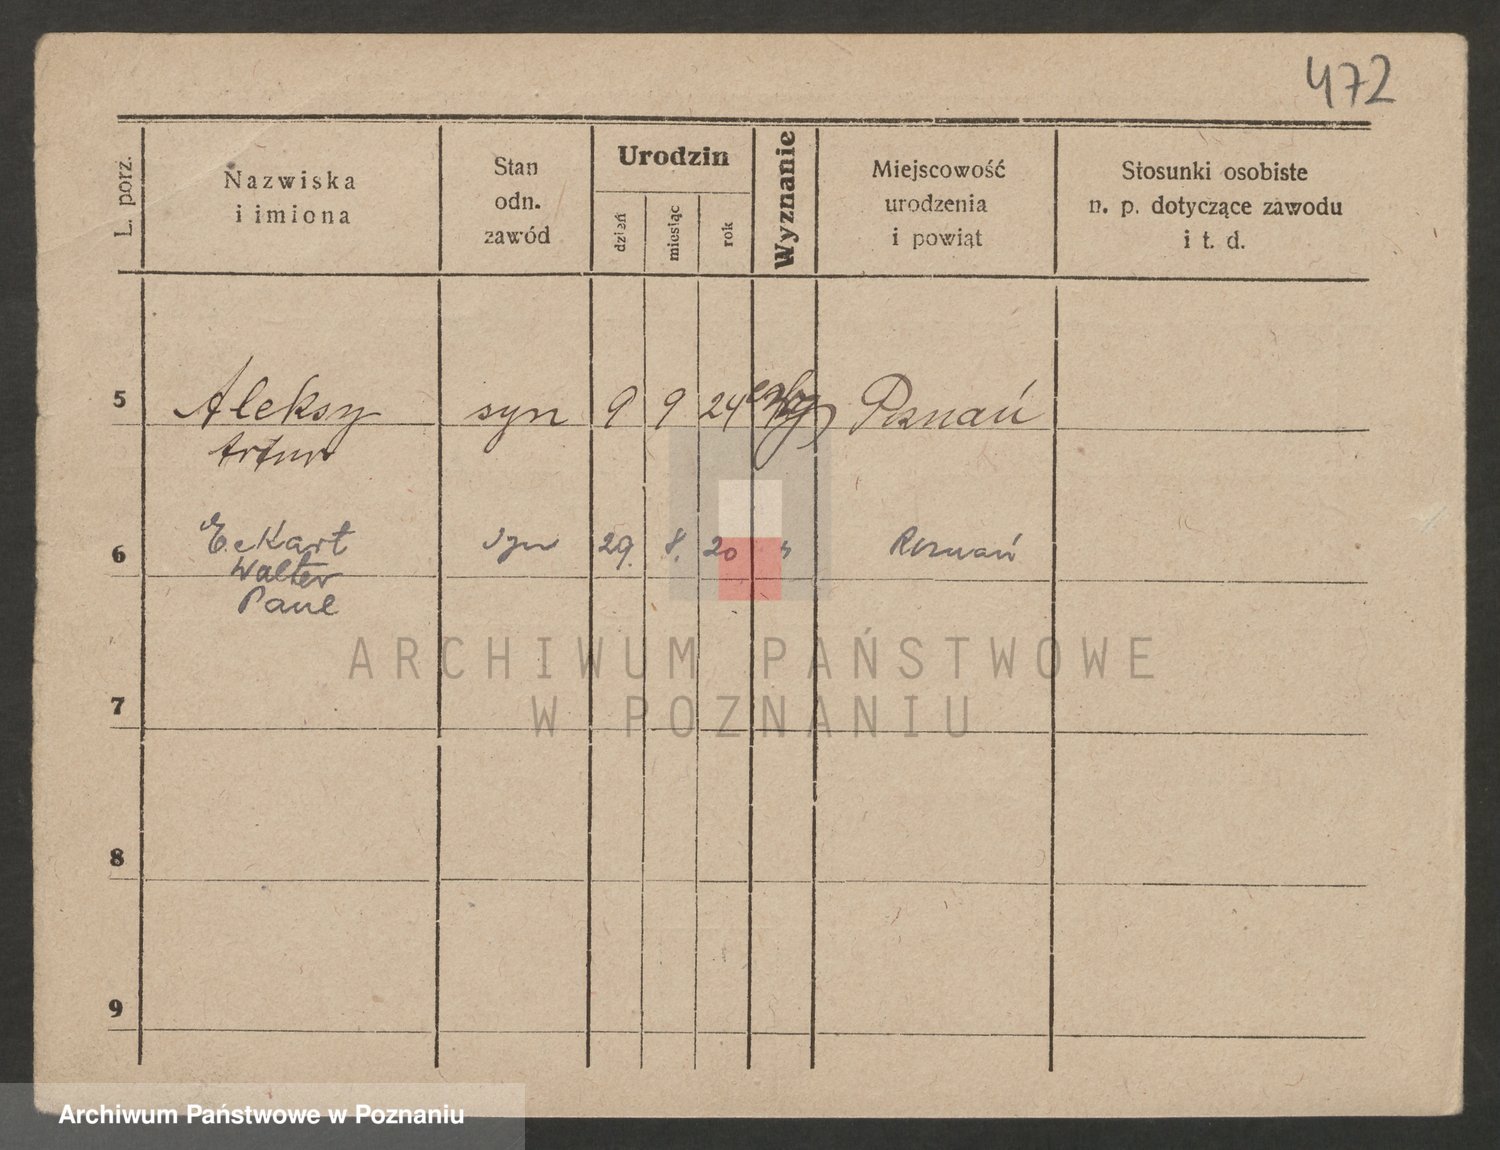 472
L. porz.
Nazwiska
i imiona
Stan
odn.
zawód
Urodzin
dzień
miesiąc
rok
Wyznanie
Miejscowość
urodzenia
i powiąt
Stosunki osobiste
n. p. dotyczące zawodu
i t. d.
5 Aleksy syn 9 9 24 Poznań
Artur
6 Eckart syn 29. 8. 20 " Poznań
Walter
Paul
ARCHIWUM PAŃSTWOWE
W POZNANIU
7
8
9
Archiwum Państwowe w Poznaniu